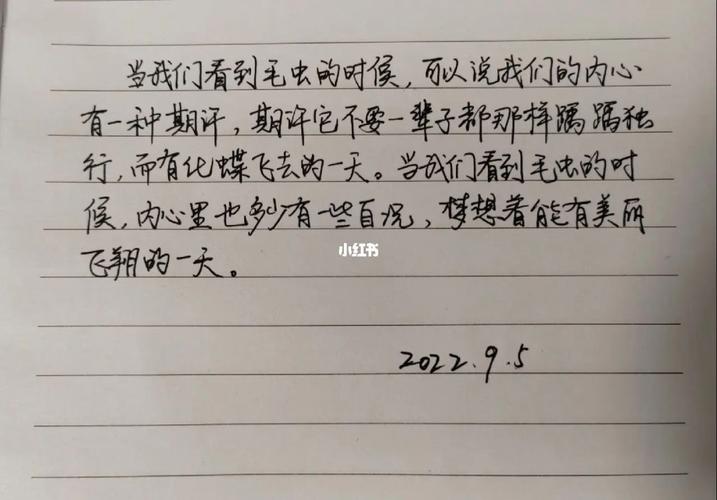 当我们看到毛虫的时候，可以说我们的内心
有一种期许，期许它不要一辈子都那样踽踽独
行，而有化蝶飞去的一天。当我们看到毛虫的时
候，内心里也多少有一些自况，梦想着能有美丽
飞翔的一天。
小红书
2022.9.5